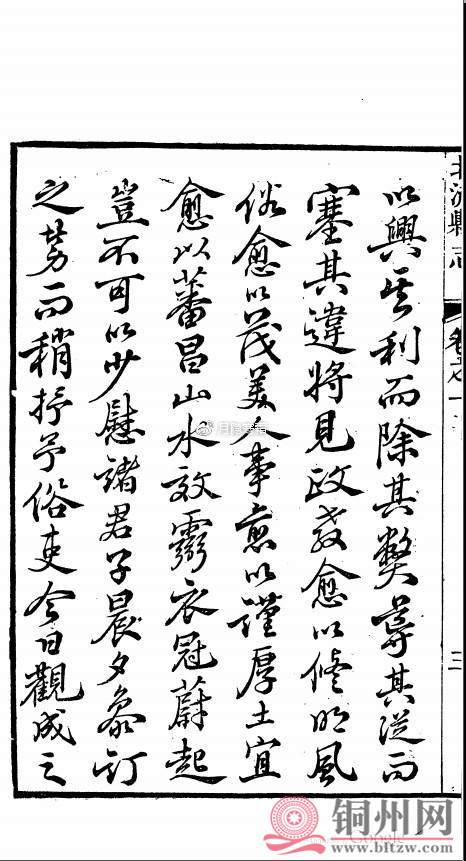 北流縣志
卷之一
三
以興其利而除其弊導其從而
塞其違將見政教愈以修明風
俗愈以茂美人事愈以謹厚土宜
愈以蕃昌山水效靈衣冠蔚起
豈不可以少慰諸君子晨夕參訂
之勞而稍抒予俗吏今日觀成之
铜州网
www.bltzw.com
Google